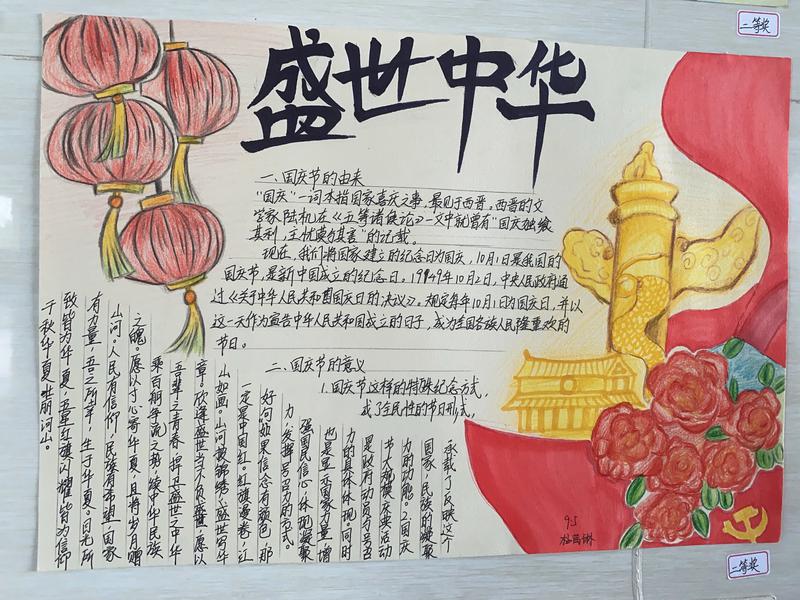 二等奖
盛世中华
一、国庆节的由来
"国庆"一词本指国家喜庆之事，最见于西晋。西晋的文
学家陆机在《五等诸侯论》一文中就曾有"国庆独飨
其利，主忧莫与其害"的记载。
现在，我们将国家建立的纪念日为国庆，10月1日是我国的
国庆节，是新中国成立的纪念日。1949年10月2日，中央人民政府通
过《关于中华人民共和国国庆日的决议》。规定每年10月1日为国庆日，并以
这一天作为宣告中华人民共和国成立的日子，成为全国各族人民隆重欢的
节日。
二、国庆节的意义
1.国庆节这样的特殊纪念方式，
成了全民性的节日形式，
承载了反映这个
国家、民族的凝聚
力的功能。2.国庆
节大规模庆典活动
是政府动员与号召
力的具体体现，同时
也是显示国家力量，增
强国民信心，体现凝聚
力，发挥号召力的方式。
好句如果信念有颜色，那
一定是中国红。红旗漫卷，江
山如画。山河披锦绣，盛世写华
章。欣逢盛世当不负盛世，愿以
吾辈之青春，捍卫盛世之中华
乘百期年流之势，续中华民族
之魄。愿以寸心寄华夏，且将岁月赠
山河。人民有信仰，民族有希望，国家
有力量，吾之所牵，生于华夏。目光所
致皆为华夏，五星红旗闪耀皆为信仰
千秋华夏，壮丽河山。
9.5
二等奖